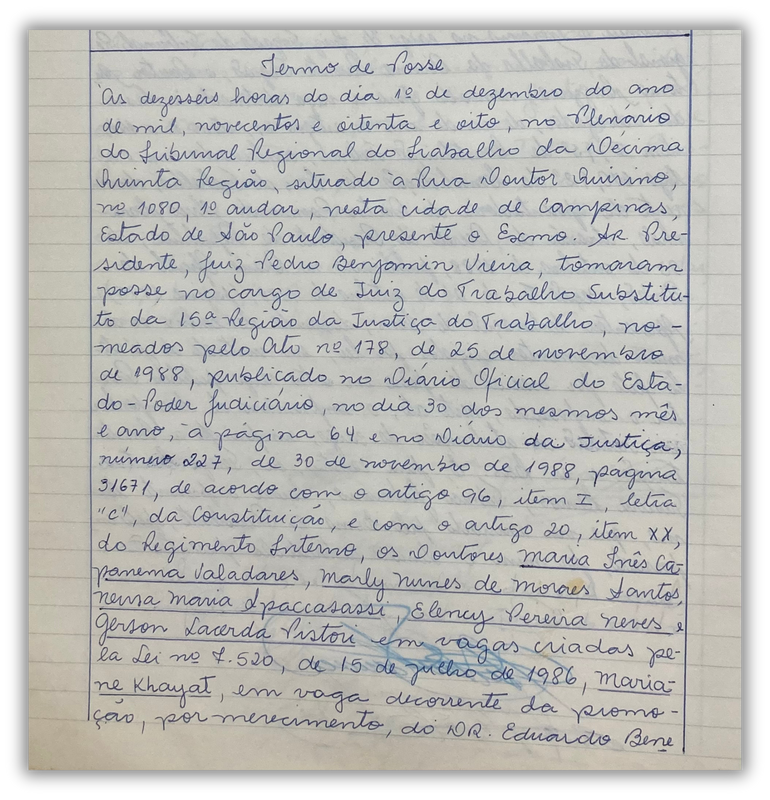 Termo de Posse
Às dezesseis horas do dia 1º de dezembro do ano
de mil, novecentos e oitenta e oito, no Plenário
do Tribunal Regional do Trabalho da Décima
Quinta Região, situado à Rua Doutor Quirino,
nº 1080, 1º andar, nesta cidade de Campinas,
Estado de São Paulo, presente o Exmo. Sr. Pre-
sidente, Juiz Pedro Benjamin Vieira, tomaram
posse no cargo de Juiz do Trabalho Substitu-
to da 15ª Região da Justiça do Trabalho, no-
meados pelo Ato nº 178, de 25 de novembro
de 1988, publicado no Diário Oficial do Esta-
do-Poder Judiciário, no dia 30 dos mesmos mês
e ano, à página 64 e no Diário da Justiça,
número 227, de 30 de novembro de 1988, página
31671, de acordo com o artigo 96, item I, letra
"c", da Constituição, e com o artigo 20, item XX,
do Regimento Interno, os Doutores Maria Inês Ca-
panema Valadares, Marly Nunes de Moraes Santos,
Neusa Maria Spaccasassi Elency Pereira Neves e
Gerson Lacerda Pistori em vagas criadas pe-
la Lei nº 7.520, de 15 de julho de 1986, Maria-
ne Khayat, em vaga decorrente da promo-
ção, por merecimento, do DR. Eduardo Bene